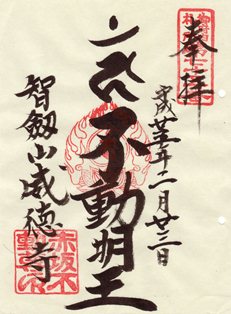 奉拝
平成廿五年二月廿三日
不動明王
智剱山威徳寺
赤坂不動尊